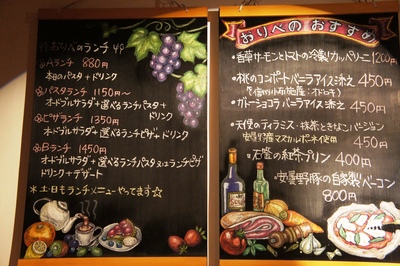 おりべのランチ
Aランチ 880円
本日のパスタ+ドリンク
パスタランチ 1150円〜
オードブルサラダ+選べるランチパスタ+
ドリンク
ピザランチ 1350円
オードブルサラダ+選べるランチピザ+
ドリンク
Bランチ 1450円
オードブルサラダ+選べるランチパスタ又はランチピザ
ドリンク+デザート
*土日もランチメニューやってます☆
おりべのおすすめ
香草サーモンとトマトの冷製カッペリーニ 1200円
桃のコンポートバニラアイス添え 450円
ガトーショコラ バニラアイス添え 450円
天使のティラミス・抹茶ときなこバージョン
安曇野産マスカルポーネ使用 450円
石窯の紅茶プリン 400円
安曇野豚の自家製ベーコン
800円